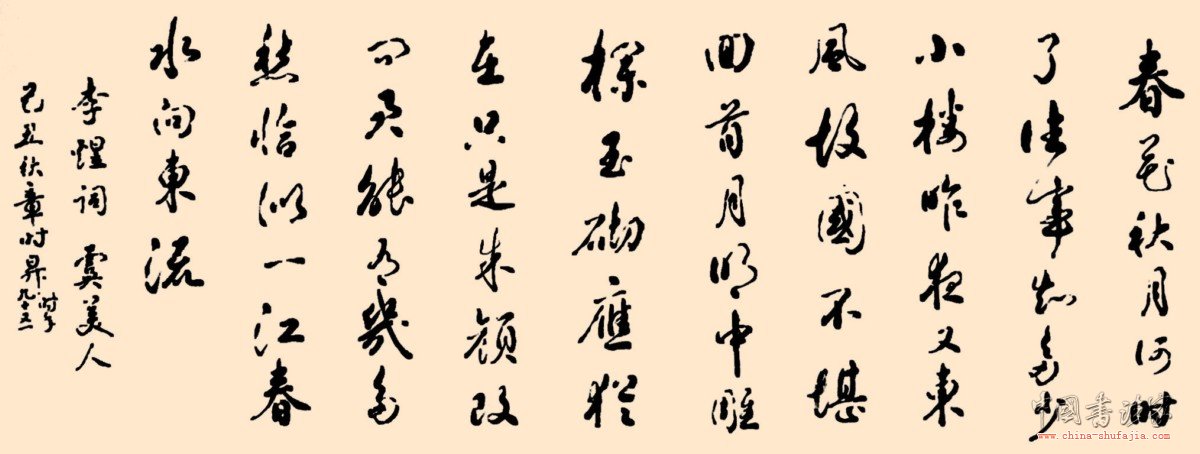 春花秋月何时
了往事知多少
小楼昨夜又東
風故國不堪
回首月明中雕
欄玉砌應猶
在只是朱顔改
问君能有幾多
愁恰似一江春
水向東流
李煜词 虞美人
己丑秋章时昇时年九十五
中国书法家
www.china-shufajia.com